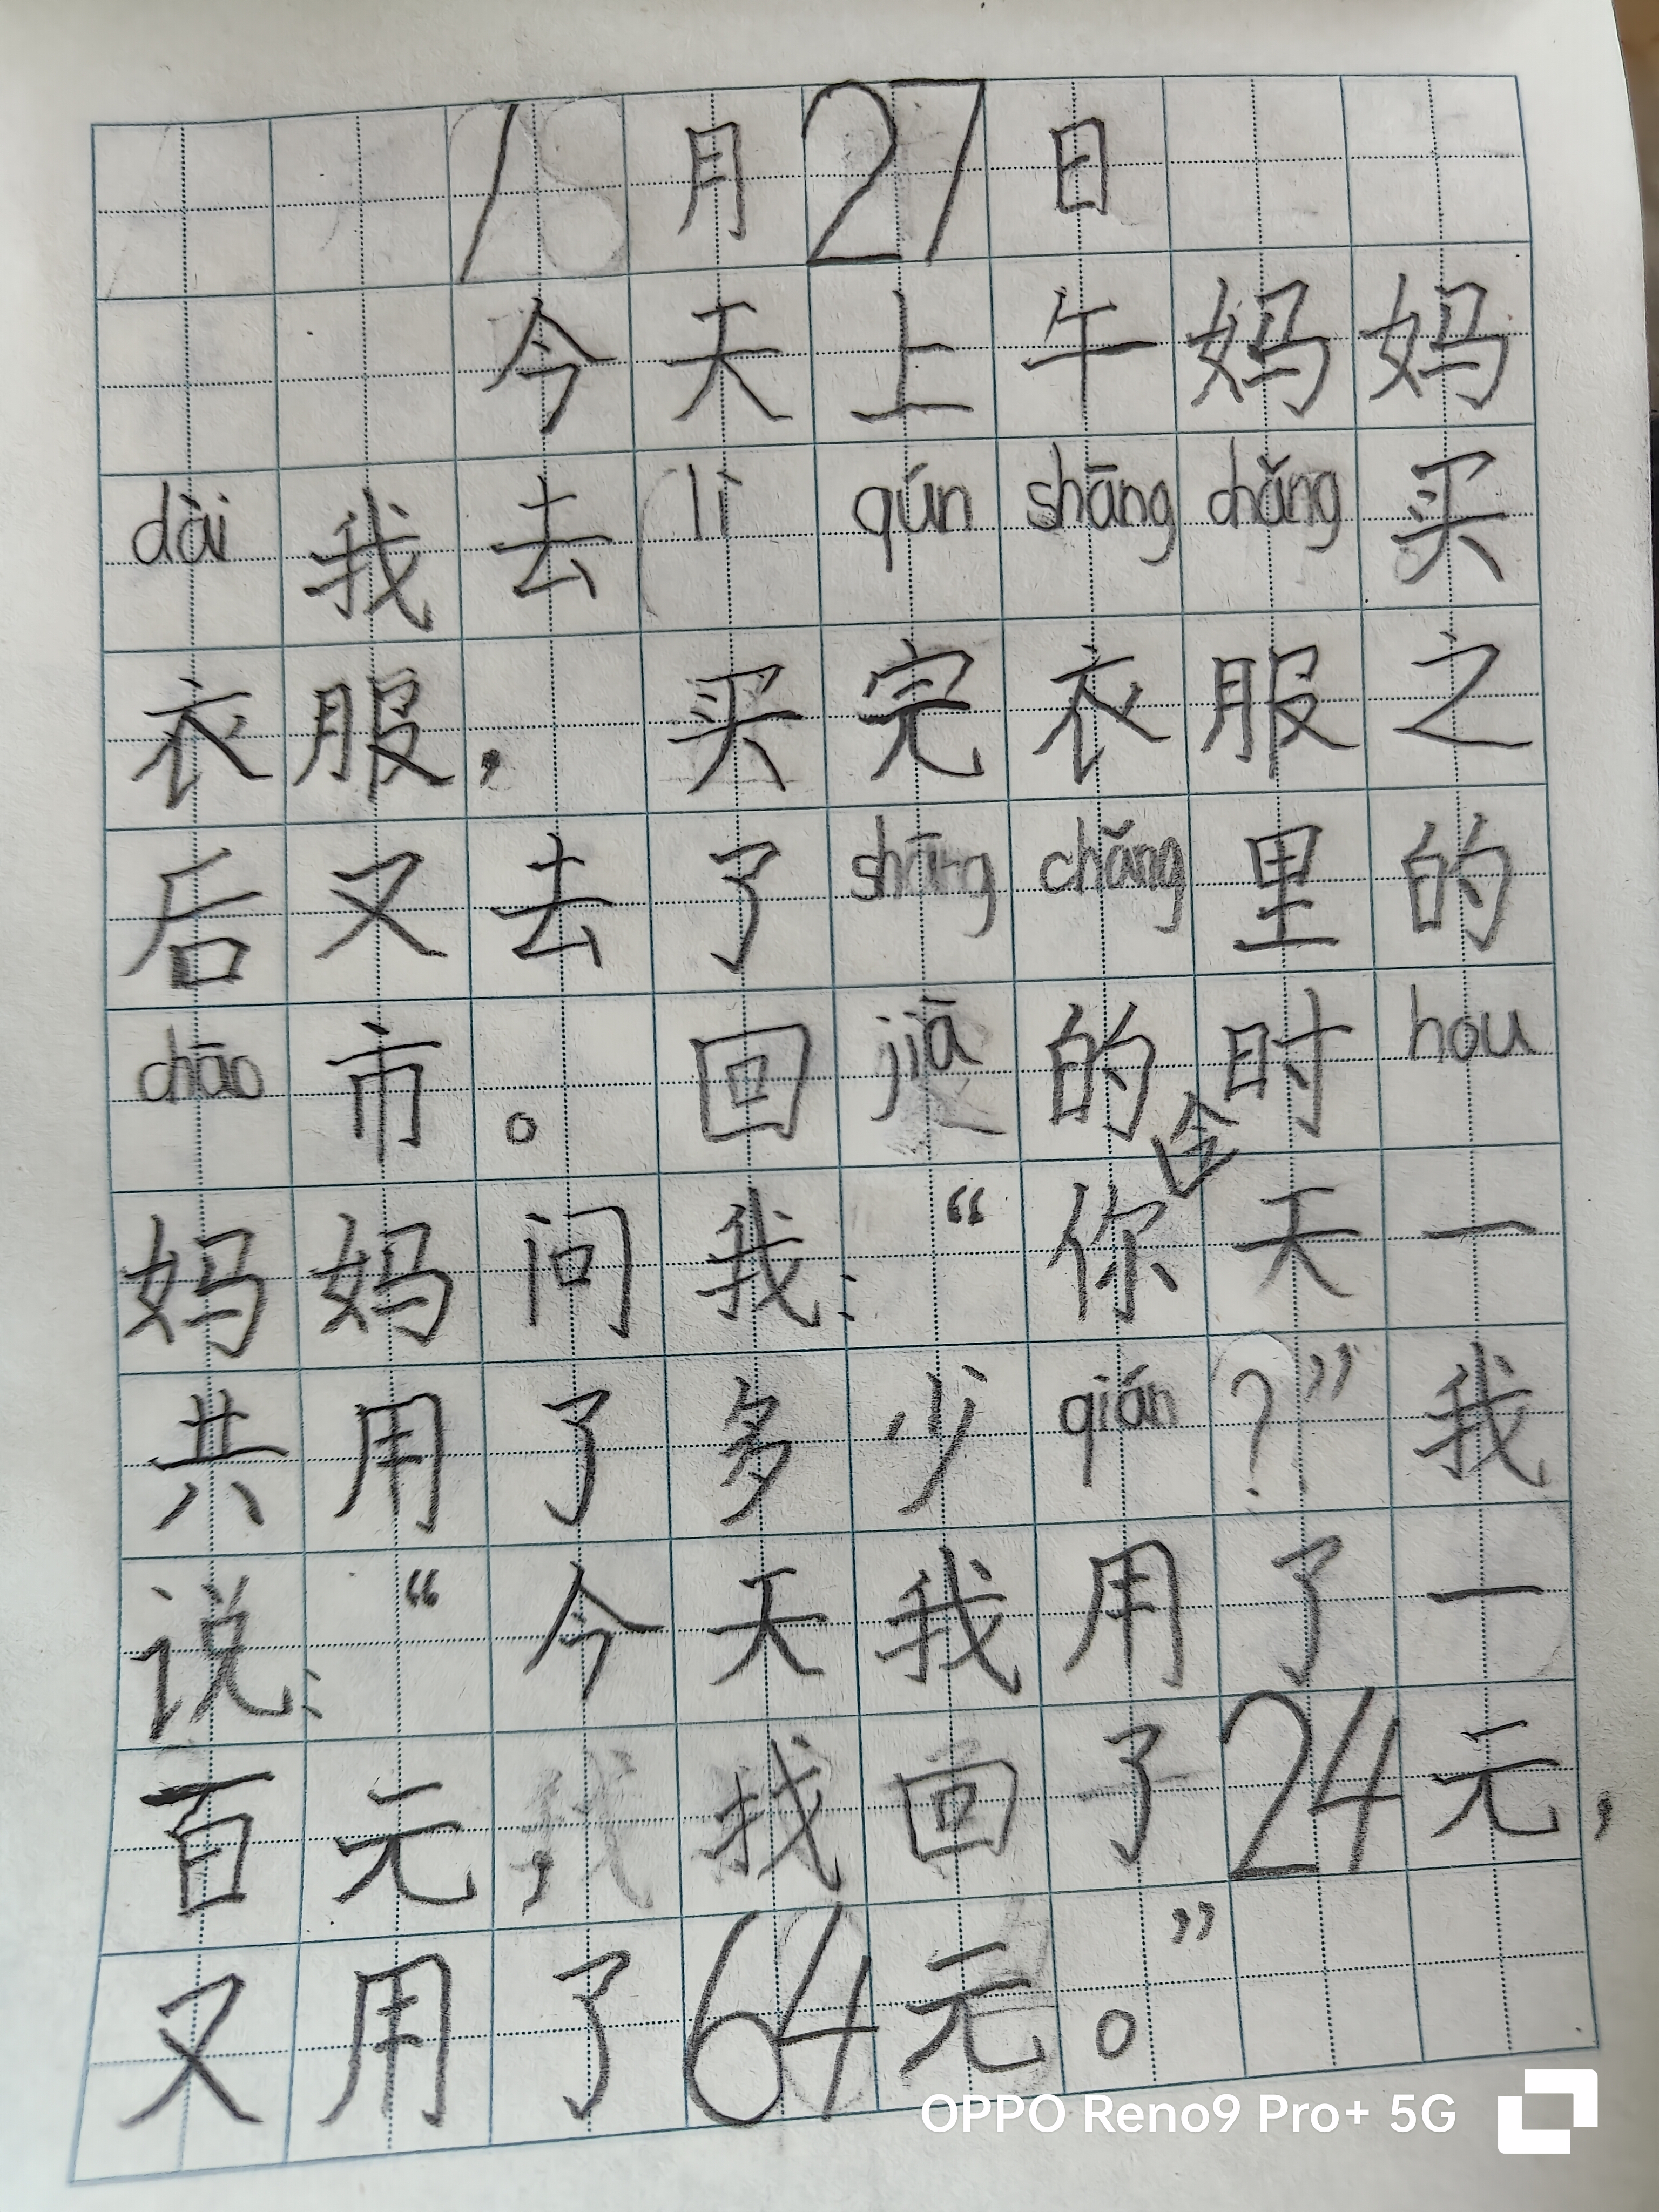 1月27日
今天上午妈妈
dài我去lì qún shāng chǎng买
衣服，买完衣服之
后又去了shāng chǎng里的
chāo市。回jiā的时hou
妈妈问我：“你今天一
共用了多少qián？”我
说：“今天我用了一
百元，找回了24元，
又用了64元。”
OPPO Reno9 Pro+ 5G